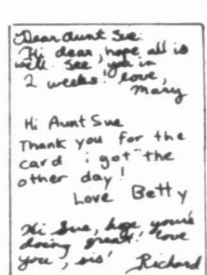 Dear Aunt Sue:
Hi dear, hope all is
well. See you in
2 weeks! love,
Mary
Hi Aunt Sue
Thank you for the
card i got the
other day!
Love Betty
Hi Sue, hope you're
doing great! love
you, sis'
Richard